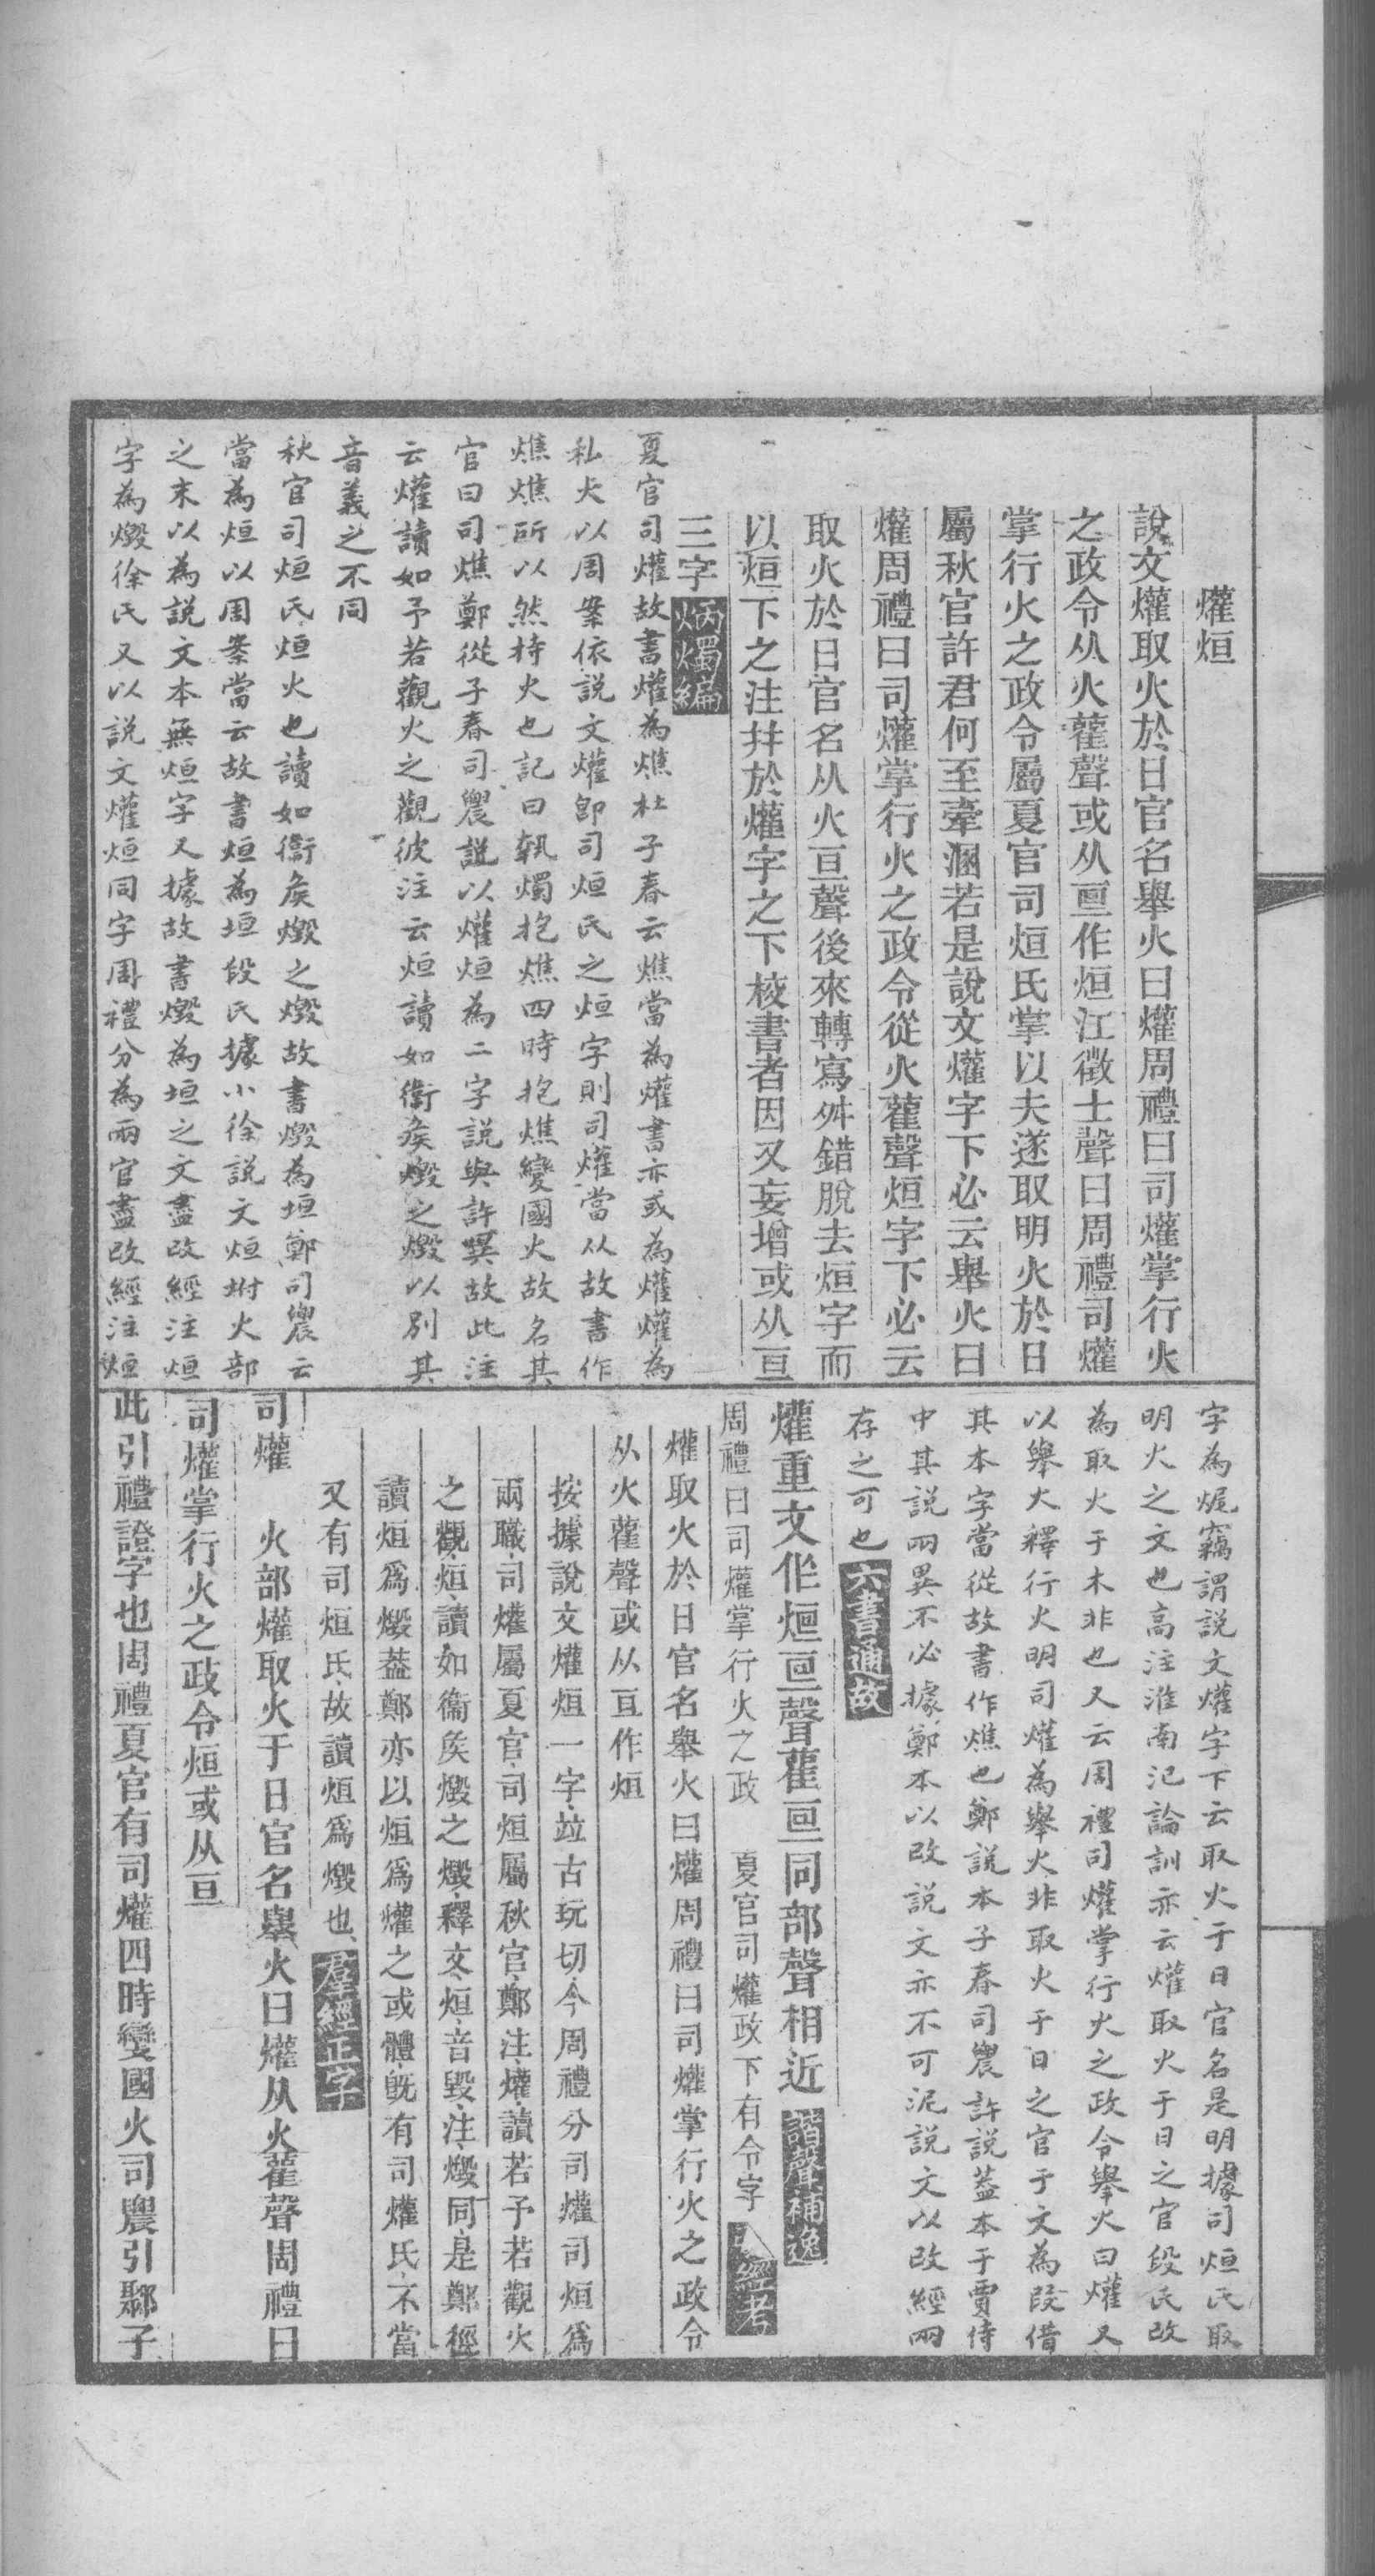 爟烜
說文爟取火於日官名舉火曰爟周禮曰司爟掌行火
之政令从火雚聲或从亘作烜江徵士聲曰周禮司爟
掌行火之政令屬夏官司烜氏掌以夫遂取明火於日
屬秋官許君何至牽溷若是說文爟字下必云舉火曰
爟周禮曰司爟掌行火之政令從火雚聲烜字下必云
取火於日官名从火亘聲後來轉寫舛錯脫去烜字而
以烜下之注拜於爟字之下校書者因又妄增或从亘
三字炳燭編
夏官司爟故書爟為燋杜子春云燋當為爟書亦或為爟爟為
私火以周案依說文爟卽司烜氏之烜字則司爟當从故書作
燋燋所以然持火也記曰執燭抱燋四時抱燋變國火故名其
官曰司燋鄭從子春司農說以爟烜為二字說與許異故此注
云爟讀如予若觀火之觀彼注云烜讀如衛矦燬之燬以別其
音義之不同
秋官司烜氏烜火也讀如衞矦燬之燬故書燬為垣鄭司農云
當為烜以周案當云故書烜為垣段氏據小徐說文烜坿火部
之末以為說文本無烜字又據故書燬為垣之文盡改經注烜
字為燬徐氏又以説文爟烜同字周禮分為兩官盡改經注烜
字為烜竊謂說文爟字下云取火于日官名是明據司烜氏取
明火之文也高注淮南氾論訓亦云爟取火于日之官段氏改
為取火于木非也又云周禮司爟掌行火之政令舉火曰爟又
以舉火釋行火明司爟為舉火非取火于日之官于文為叚借
其本字當從故書作燋也鄭說本子春司農許說葢本于賈侍
中其說兩異不必據鄭本以改說文亦不可泥說文以改經兩
存之可也六書通故
爟重文作烜亘聲雚亘同部聲相近諧聲補逸
周禮曰司爟掌行火之政　夏官司爟政下有令字
爟取火於日官名舉火曰爟周禮曰司爟掌行火之政令
从火雚聲或从亘作烜
按據說文爟烜一字竝古玩切今周禮分司爟司烜爲
兩職司爟屬夏官司烜屬秋官鄭注爟讀若予若觀火
之觀烜讀如衞矦燬之燬釋文烜音毀注燬同是鄭徑
讀烜爲燬葢鄭亦以烜爲爟之或體旣有司爟氏不當
又有司烜氏故讀烜爲燬也羣經正字
司爟　火部爟取火于日官名舉火曰爟从火雚聲周禮曰
司爟掌行火之政令烜或从亘
此引禮證字也周禮夏官有司爟四時變國火司農引鄹子